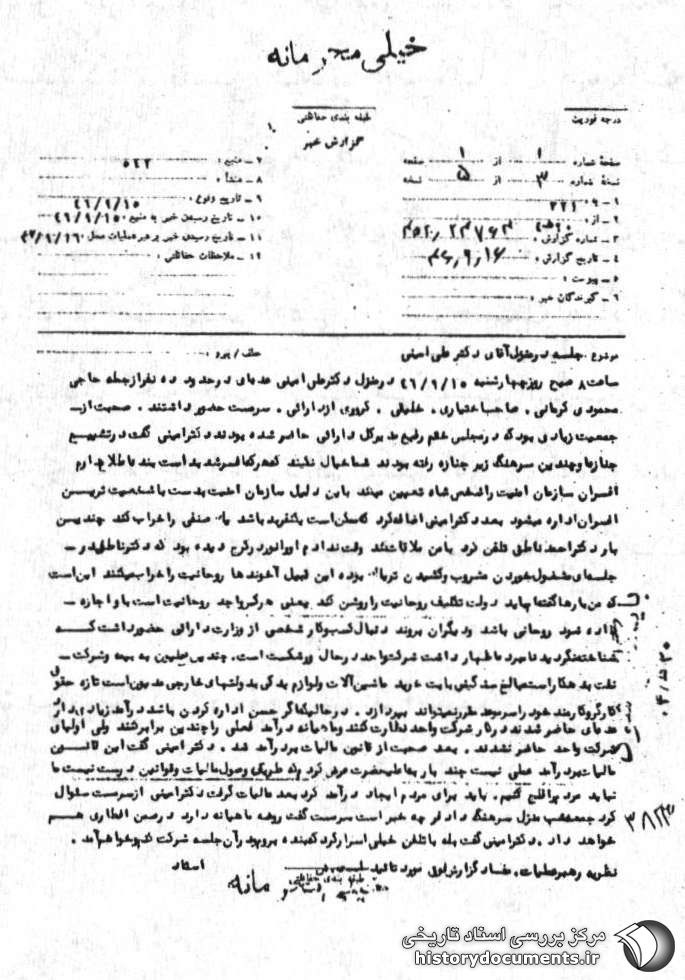 خیلی محرمانه
درجه فوریت
طبقه بندی حفاظتی
گزارش خبر
صفحه شماره : ۱ از ۱ صفحه
نسخه شماره ۳ از ۵ نسخه
۱ - به : ۳۲۱
۲ - از :
۳ - شماره گزارش :
۴ - تاریخ گزارش : ۴۶،۹،۱۶
۵ - پیوست :
۶ - گیرندگان خبر :
۷ - منبع : ۵۲۲
۸ - منشأ :
۹ - تاریخ وقوع : ۴۶/۹/۱۵
۱۰ - تاریخ رسیدن خبر به منبع : ۴۶/۹/۱۵
۱۱ - تاریخ رسیدن خبر به رهبر عملیات محل : ۴۶/۹/۱۶
۱۲ - ملاحظات حفاظتی :
موضوع : جلسه در منزل آقای دکتر علی امینی
ساعت ۸ صبح روز چهارشنبه ۴۶/۹/۱۵ در منزل دکتر علی امینی عده‌ای در حدود ده نفر از جمله حاجی
محمودی کرمانی ، صاحب اختیاری ، خلیلی ، از دارائی ، سرمست حضور داشتند . صحبت از
جمعیت زیادی بود که در مجلس ختم مدیر کل دارائی حاضر شده بودند دکتر امینی گفت در تشییع
جنازه‌ها چندین سرهنگ زیر جنازه رفته بودند شما خیال نکنید افسر شد بد است بنده اطلاع دارم
افسران سازمان امنیت را شخص شاه تعیین میکند باین دلیل سازمان امنیت بدست با شخصیت ترین
افسران اداره میشود بعد دکتر امینی اضافه کرد که ممکن است یکنفر بد باشد یا صنفی را خراب کند چندین
بار دکتر احمد ناطقی تلفن کرد با من ملاقات کند وقت ندادم او را نورد کرج دیده بود که دکتر ناطقی در
جلسه‌ای مشغول خوردن مشروب و کشیدن تریاک بوده این قبیل آخوندها روحانیت را خراب میکنند این است
که من بارها گفته‌ام باید دولت تکلیف روحانیت را روشن کند یعنی هر کس واجد روحانیت است باو اجازه
داده شود روحانی باشد و دیگران بروند دنبال کسب و کار شخصی از وزارت دارائی حضور داشت که
شناخته نگردید نامبرده اظهار داشت شرکت واحد در حال ورشکست است، چندین میلیون به بیمه و شرکت
نفت بدهکار است مبالغ سنگینی بابت خرید ماشین آلات و لوازم یدکی بدولتهای خارجی مدیون است تازه حقوق
کارگر و کارمند خود را سر موعد مقرر نمیتواند بپردازد . در حالیکه اگر حسن اداره کردن باشد درآمد زیاد دارد
عده‌ای حاضر شدند در کار شرکت واحد نظارت کنند و ماهیانه درآمد فعلی را چندین برابر کنند ولی اولیای
شرکت واحد حاضر نشدند . بعد صحبت از قانون مالیات بر درآمد شد . دکتر امینی گفت این قانون
مالیات بر درآمد عملی نیست چند بار به اعلیحضرت عرض کرد که طریق وصول مالیات و قوانین درست نیست ما
نباید مردم را فلج کنیم . باید برای مردم ایجاد درآمد کرد بعد مالیات گرفت دکتر امینی از سرمست سئوال
کرد جمعه شب منزل سرهنگ دادفر چه خبر است سرمست گفت روضه ماهیانه دارد و در ضمن افطاری هم
خواهد داد . دکتر امینی گفت بله با تلفن خیلی اصرار کرد که بنده بروم در آن جلسه شرکت کنم و خواهم آمد .
نظریه رهبر عملیات . مفاد گزارش فوق مورد تائید میباشد
استاد
طبقه بندی حفاظتی
۳۸۲۳
مرکز بررسی اسناد تاریخی
historydocuments.ir